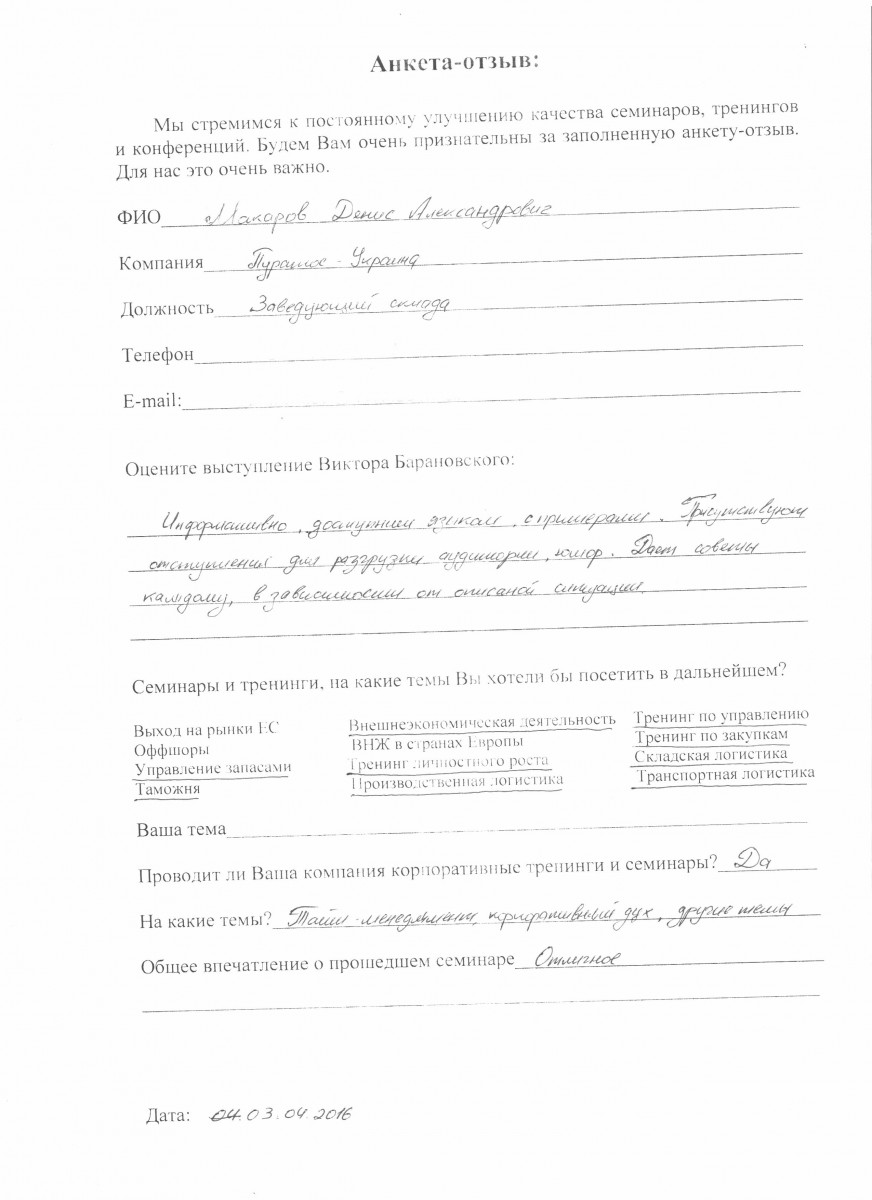 Анкета-отзыв:
Мы стремимся к постоянному улучшению качества семинаров, тренингов
и конференций. Будем Вам очень признательны за заполненную анкету-отзыв.
Для нас это очень важно.
ФИО Макаров Денис Александрович
Компания Пуратос - Украина
Должность Заведующий склада
Телефон
E-mail:
Оцените выступление Виктора Барановского:
Информативно, доступным языком, с примерами. Присутствуют
отступления для разгрузки аудитории, юмор. Дает советы
каждому, в зависимости от описаной ситуации.
Семинары и тренинги, на какие темы Вы хотели бы посетить в дальнейшем?
Выход на рынки ЕС Внешнеэкономическая деятельность Тренинг по управлению
Оффшоры ВНЖ в странах Европы Тренинг по закупкам
Управление запасами Тренинг личностного роста Складская логистика
Таможня Производственная логистика Транспортная логистика
Ваша тема
Проводит ли Ваша компания корпоративные тренинги и семинары? Да
На какие темы? Тайм-менеджмент, корпоративный дух, другие темы
Общее впечатление о прошедшем семинаре Отличное
Дата: 04. 03.04.2016